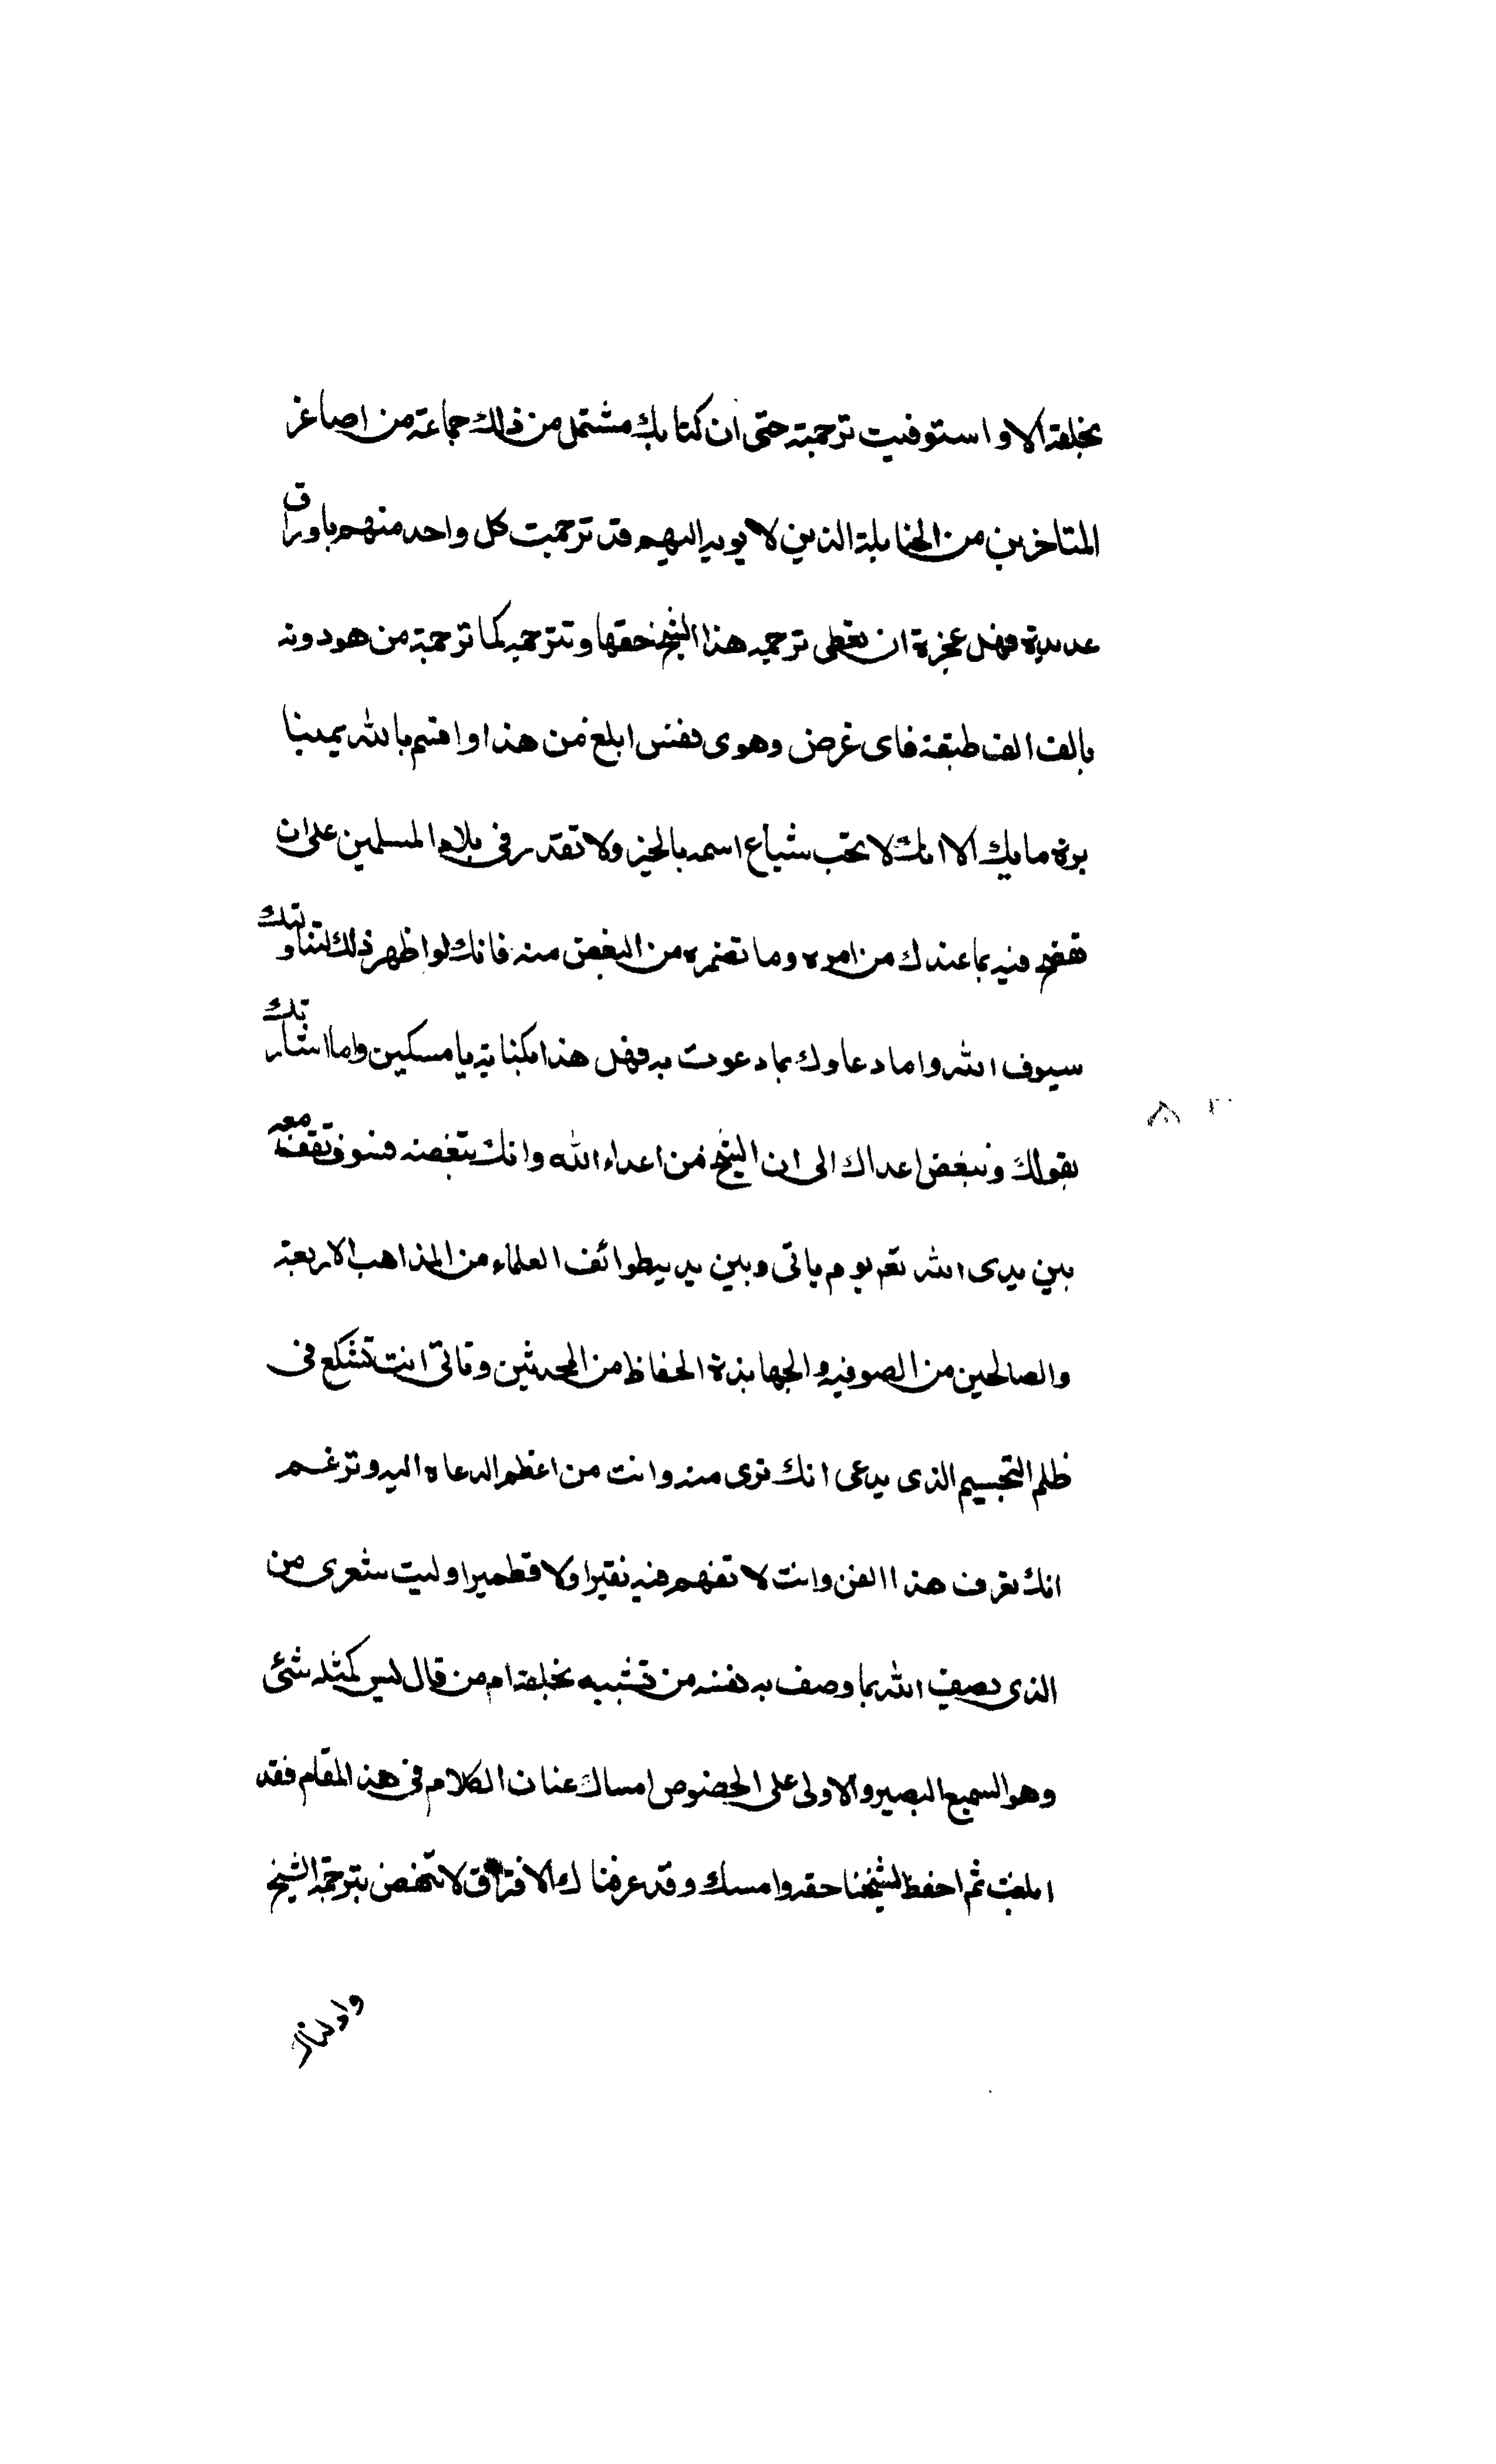 بخلقه الا واستوفيت ترجمته حتى ان كتابك مشتمل من ذلك جماعة من اصاغر
المتاخرين من الحنابلة الذين لا يوبه اليهم قد ترجمت كل واحد منهم باوراق
عديدة فهل عجزة ان تعطى ترجمه هذا الشيخ حقها وتترجمه كما ترجمة من هو دونه
بالف الف طبقة فاى غرض وهوى نفس ابلغ من هذا واقسم بالله يمينا
برة ما بك الا انك لا تحب شياع اسمه بالخير ولا تقدر فى بلاد المسلمين على ان
تفصح فيه بما عندك من امره وما تضمره من البغض منه فانك لو اظهر ذلك لتناولتك
سيوف الله واما دعاوك بما دعوت به فهل هذا مكبناته يا مسكين واما اشارتك
بقولك ونبغض اعداك الى ان الشيخ من اعداء الله وانك تبغضه فسوف تقف معه
بين يدى الله تعم يوم ياتى وبين يديه طوائف العلماء من المذاهب الاربعة
والصالحين من الصوفيه والجهابذة الحفاظ من المحدثين وتاتى انت تشكع فى
ظلم التجسيم الذى يدعى انك برى منه وانت من اعظم الدعاه اليه وتزعم
انك تعرف هذا الفن وانت لا تفهم فيه نقيرا ولا قطميرا وليت شعرى من
الذى يصف الله بما وصف به نفسه من تشبيه بخلقه ام من قال ليس كمثله شئ
وهو السميع البصير والاولى على الخصوص امساك عنان الكلام فى هذ المقام فقد
ابلغت ثم احفظ لشيخنا حقه وامسك وقد عرفناك الافتراق لا تخفض بترجمة الشيخ